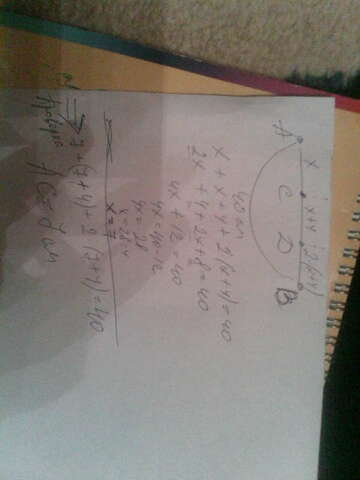 A x x+4 2(x+4) B
C D
40 см
x + x + 4 + 2(x+4) = 40
2x + 4 + 2x + 8 = 40
4x + 12 = 40
4x = 40-12
4x = 28
x = 28:4
x = 7
7 + (7+4) + 2 (7+4) = 40
AC = 7 см